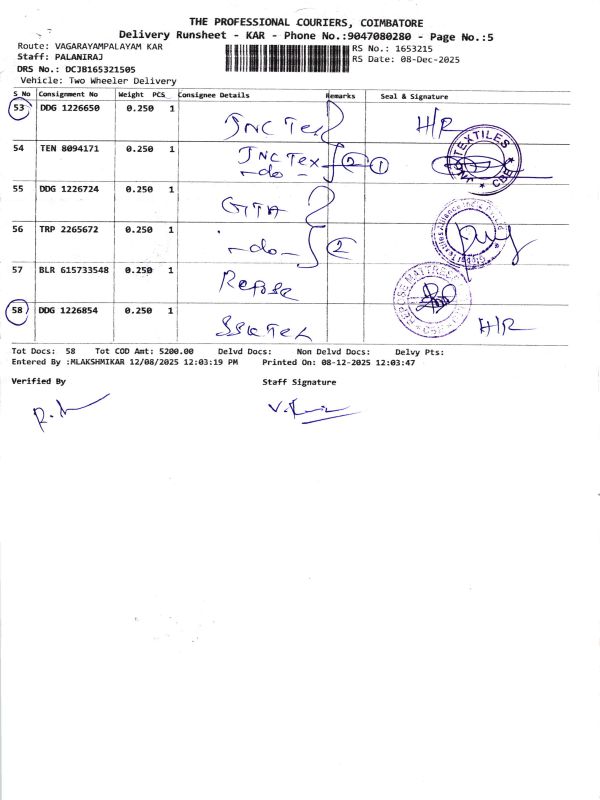 THE PROFESSIONAL COURIERS, COIMBATORE
Delivery Runsheet - KAR - Phone No.:9047080280 - Page No.:5
Route: VAGARAYAMPALAYAM KAR
RS No.: 1653215
Staff: PALANIRAJ
RS Date: 08-Dec-2025
DRS No.: DCJB165321505
Vehicle: Two Wheeler Delivery
S_No Consignment No Weight PCS_ Consignee Details Remarks Seal & Signature
53 DDG 1226650 0.250 1 JNC Tex H/R
54 TEN 8094171 0.250 1 JNC Tex 2 1
-do-
TEXTILES CBE
55 DDG 1226724 0.250 1 GTA
56 TRP 2265672 0.250 1 -do- 2
57 BLR 615733548 0.250 1 Repose
REPOSE MATTRESS
58 DDG 1226854 0.250 1 H/R
Tot Docs: 58 Tot COD Amt: 5200.00 Delvd Docs: Non Delvd Docs: Delvy Pts:
Entered By :MLAKSHMIKAR 12/08/2025 12:03:19 PM Printed On: 08-12-2025 12:03:47
Verified By Staff Signature